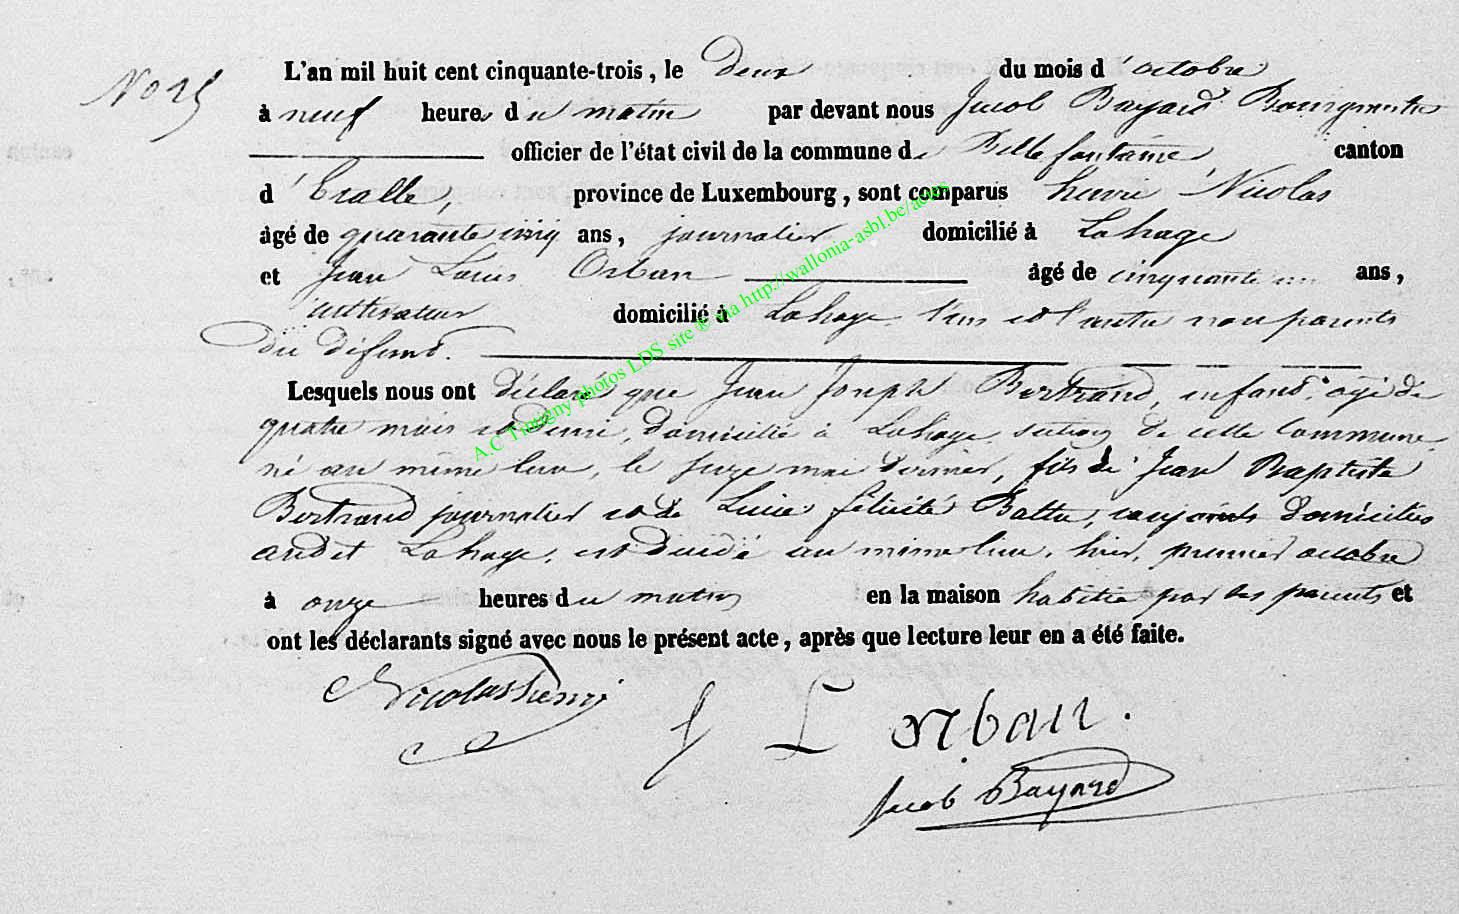 No 25
L'an mil huit cent cinquante-trois, le deux du mois d'octobre
à neuf heures du matin par devant nous Jacob Bayard Bourgmestre
officier de l'état civil de la commune de Bellefontaine canton
d'Etalle, province de Luxembourg, sont comparus henri Nicolas
âgé de quarante cinq ans, journalier domicilié à Lahage
et Jean Louis Orban âgé de cinquante un ans,
cultivateur domicilié à Lahage l'un et l'autre non parents
du défunt.
Lesquels nous ont déclaré que Jean Joseph Bertrand, enfant, agé de
quatre mois et demi, domicilié à Lahage section de cette Commune
né au même lieu, le seize mai dernier, fils de Jean Baptiste
Bertrand journalier et de Lucie félicité Battu, conjoints domiciliés
audit Lahage, est décédé au même lieu, hier, premier octobre
à onze heures du matin en la maison habitée par ses parents et
ont les déclarants signé avec nous le présent acte, après que lecture leur en a été faite.
Nicolas henri
J L orban.
Jacob Bayard
A.C Tintigny photos LDS site ® via http://wallonia-asbl.be/actes